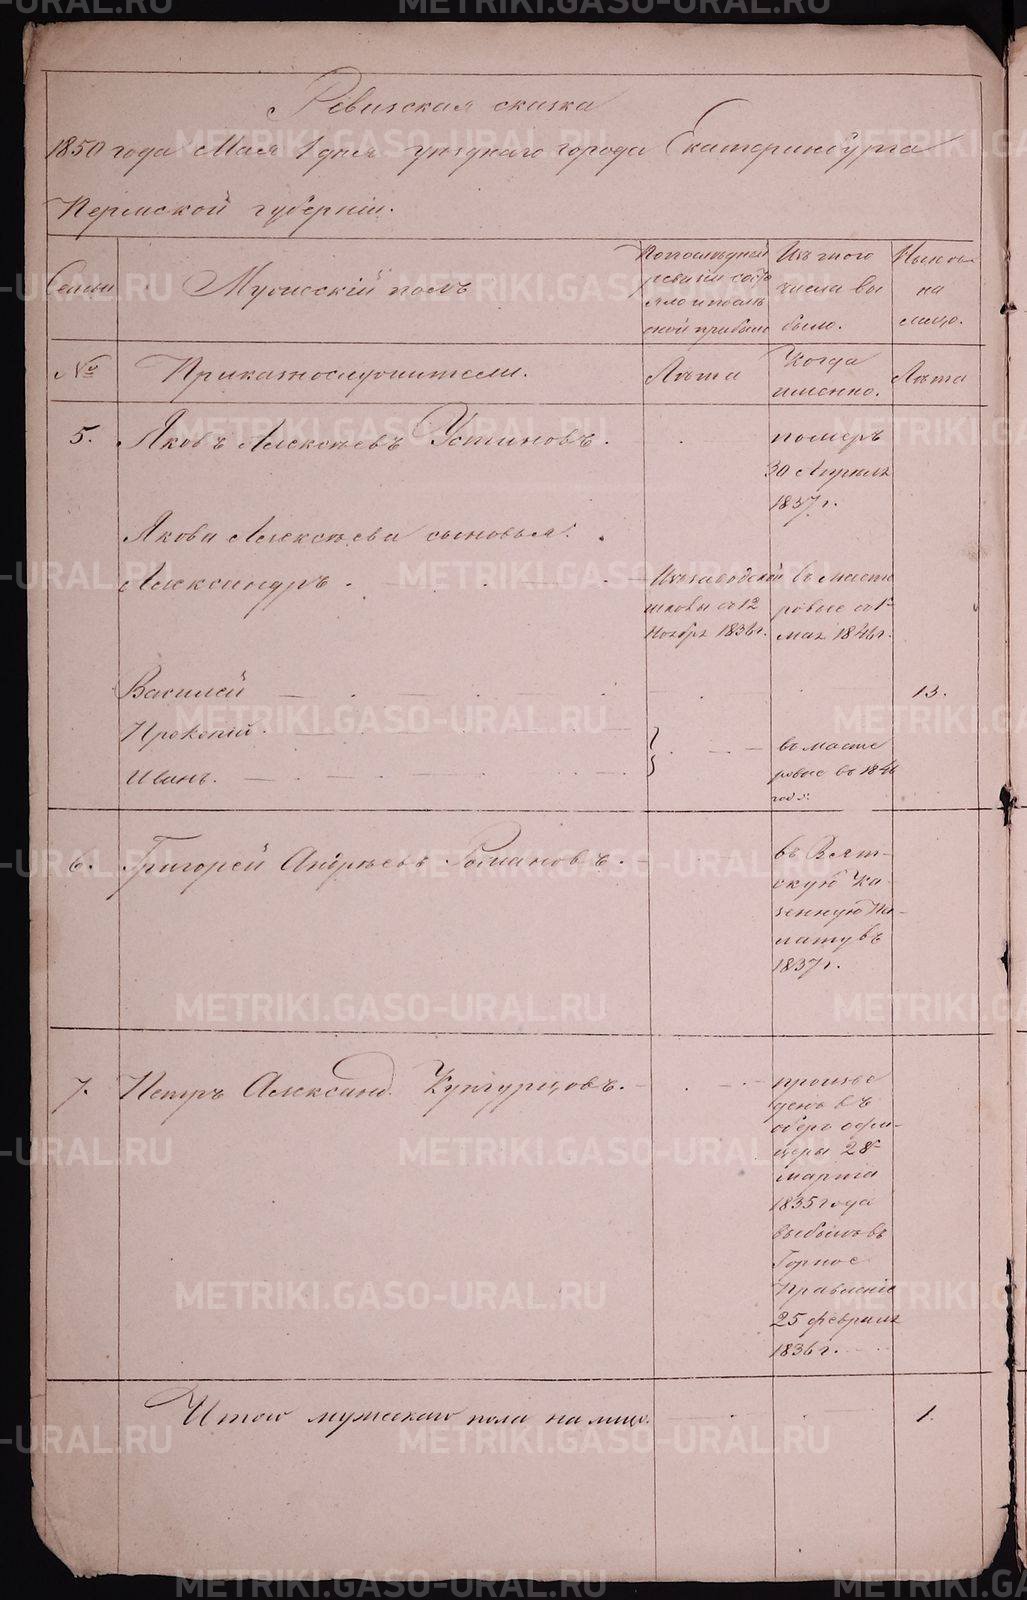 Ревизская сказка
1850 года Мая 1 дня уѣзднаго города Екатеринбурга
Пермской губерніи.
Семьи
Мужескій полъ
По последней
ревизіи состо
яло и после
оной прибыло
Изъ того
числа вы
было.
Ныне
на
лицо.
№
Приказнослужители.
Лѣта
Когда
именно.
Лѣта
5.
Яковъ Алексѣевъ Устиновъ.
померъ
30 Апреля
1837 г.
Якова Алексѣева сыновья:
Александръ
Изъ заводской
школы съ 12
Ноября 1836 г.
въ масте
ровые съ 1
мая 1846 г.
Василей
13.
Прокопій
Иванъ.
въ масте
ровые въ 1846
годѣ.
6.
Григорей Андрѣевъ Романовъ.
въ Вят-
скую Ка
зенную Па-
лату въ
1837 г.
7.
Петръ Александ. Кунгурцовъ.
произве
денъ въ
оберъ офи-
церы 28
марта
1835 года
выбылъ въ
Горное
Правленіе
25 февраля
1836 г.
Итого мужескаго пола на лицо.
1.
METRIKI.GASO-URAL.RU